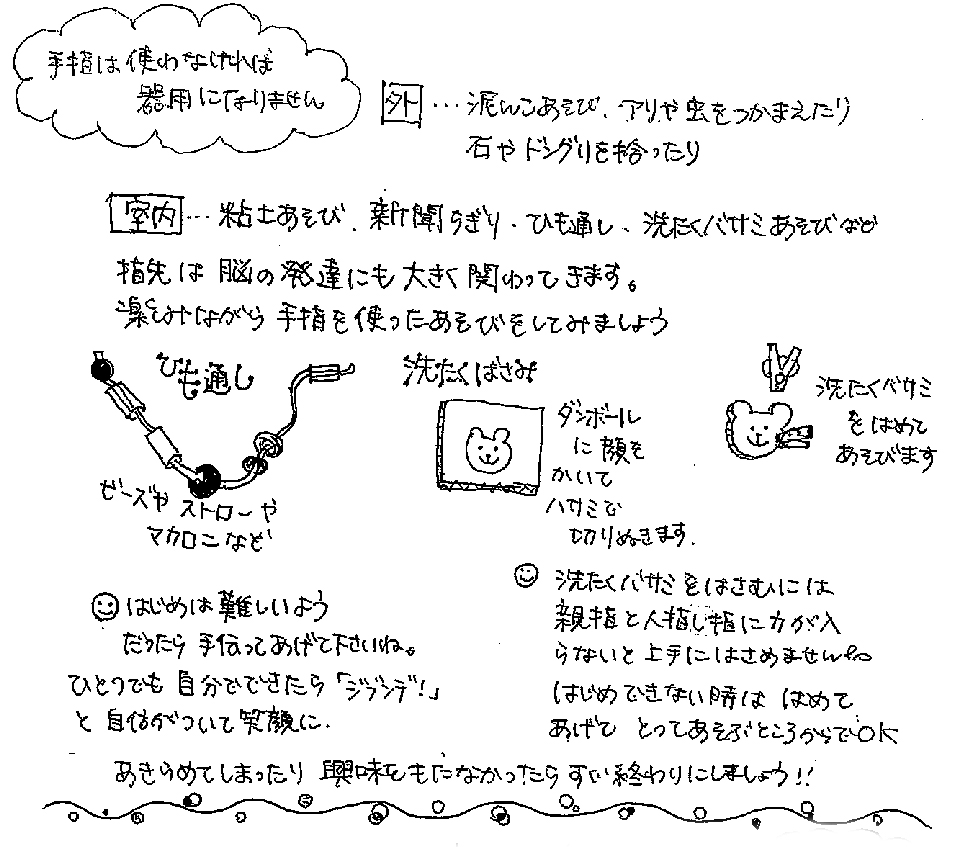 手指は使わなければ
器用になりません
外…泥んこあそび、アリや虫をつかまえたり
石やドングリを拾ったり
室内…粘土あそび、新聞ちぎり・ひも通し、洗たくバサミあそびなど
指先は脳の発達にも大きく関わってきます。
楽しみながら手指を使ったあそびをしてみましょう
ひも通し
ビーズや ストローや
マカロニなど
洗たくばさみ
ダンボール
に顔を
かいて
ハサミで
切りぬきます.
洗たくバサミ
をはめて
あそびます
はじめは難しいよう
だったら手伝ってあげて下さいね。
ひとりでも自分でできたら「ジブンデ!」
と自信がついて笑顔に.
洗たくバサミをはさむには
親指と人指し指に力が入
らないと上手にはさめません
はじめできない時は はめて
あげて とってあそぶところからでOK
あきらめてしまったり 興味をもたなかったらすぐ終わりにしましょう!!